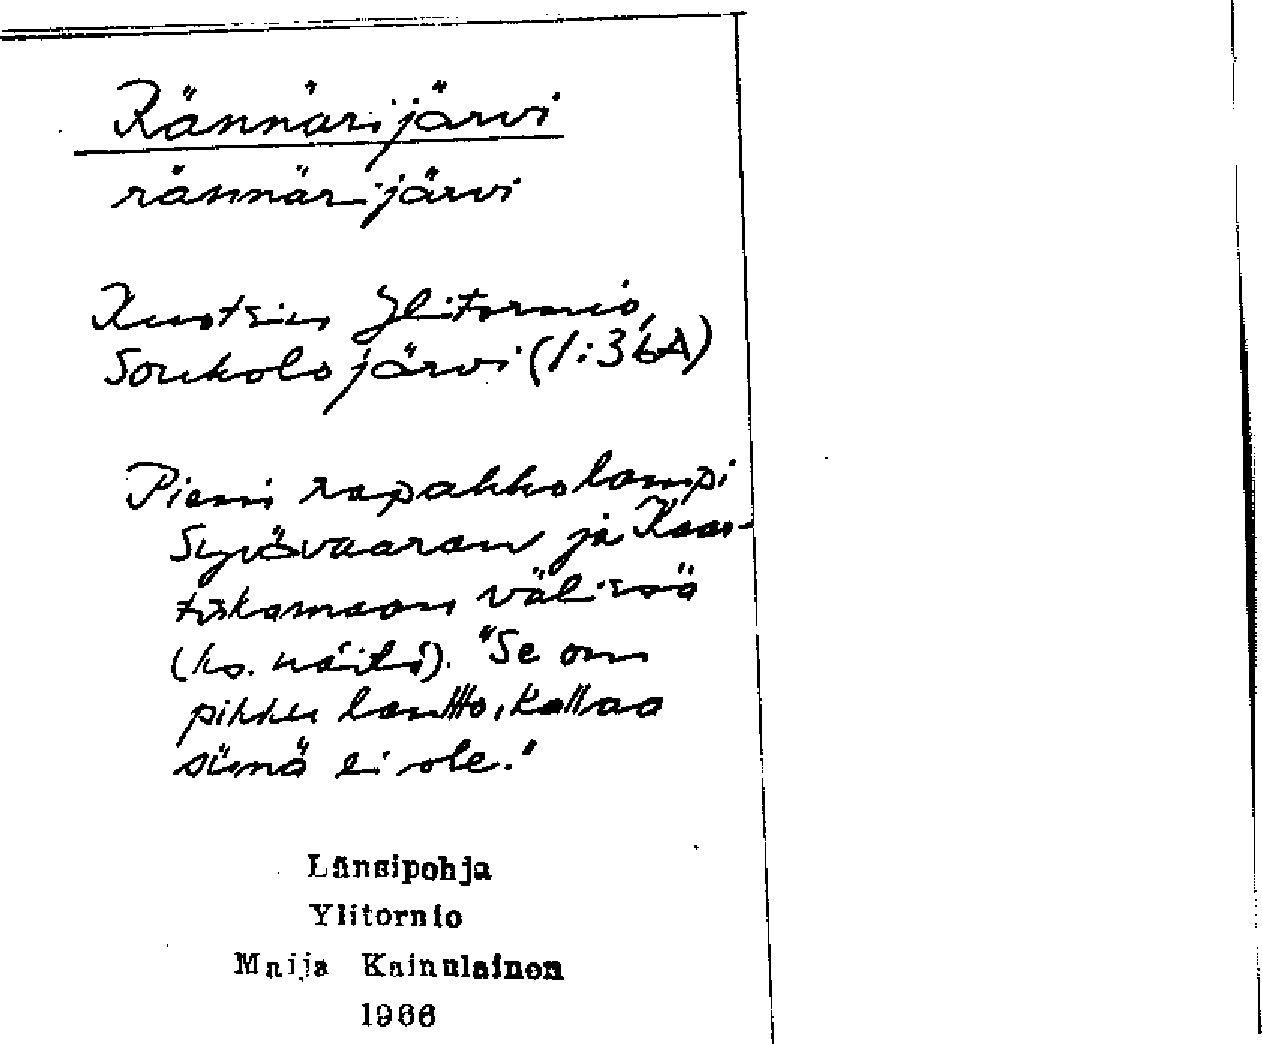 Rännärijärvi
rännärijärvi
Ruotsin Ylitornio,
Soukolojärvi (1:36A)
Pieni rapakkolampi
Syvävaaran ja Kaar-
tiskamaan välissä
(ks. näitä). "Se on
pikku lantto, kallaa
siinä ei ole."
Länsipohja
Ylitornio
Maija Kainulainen
1966